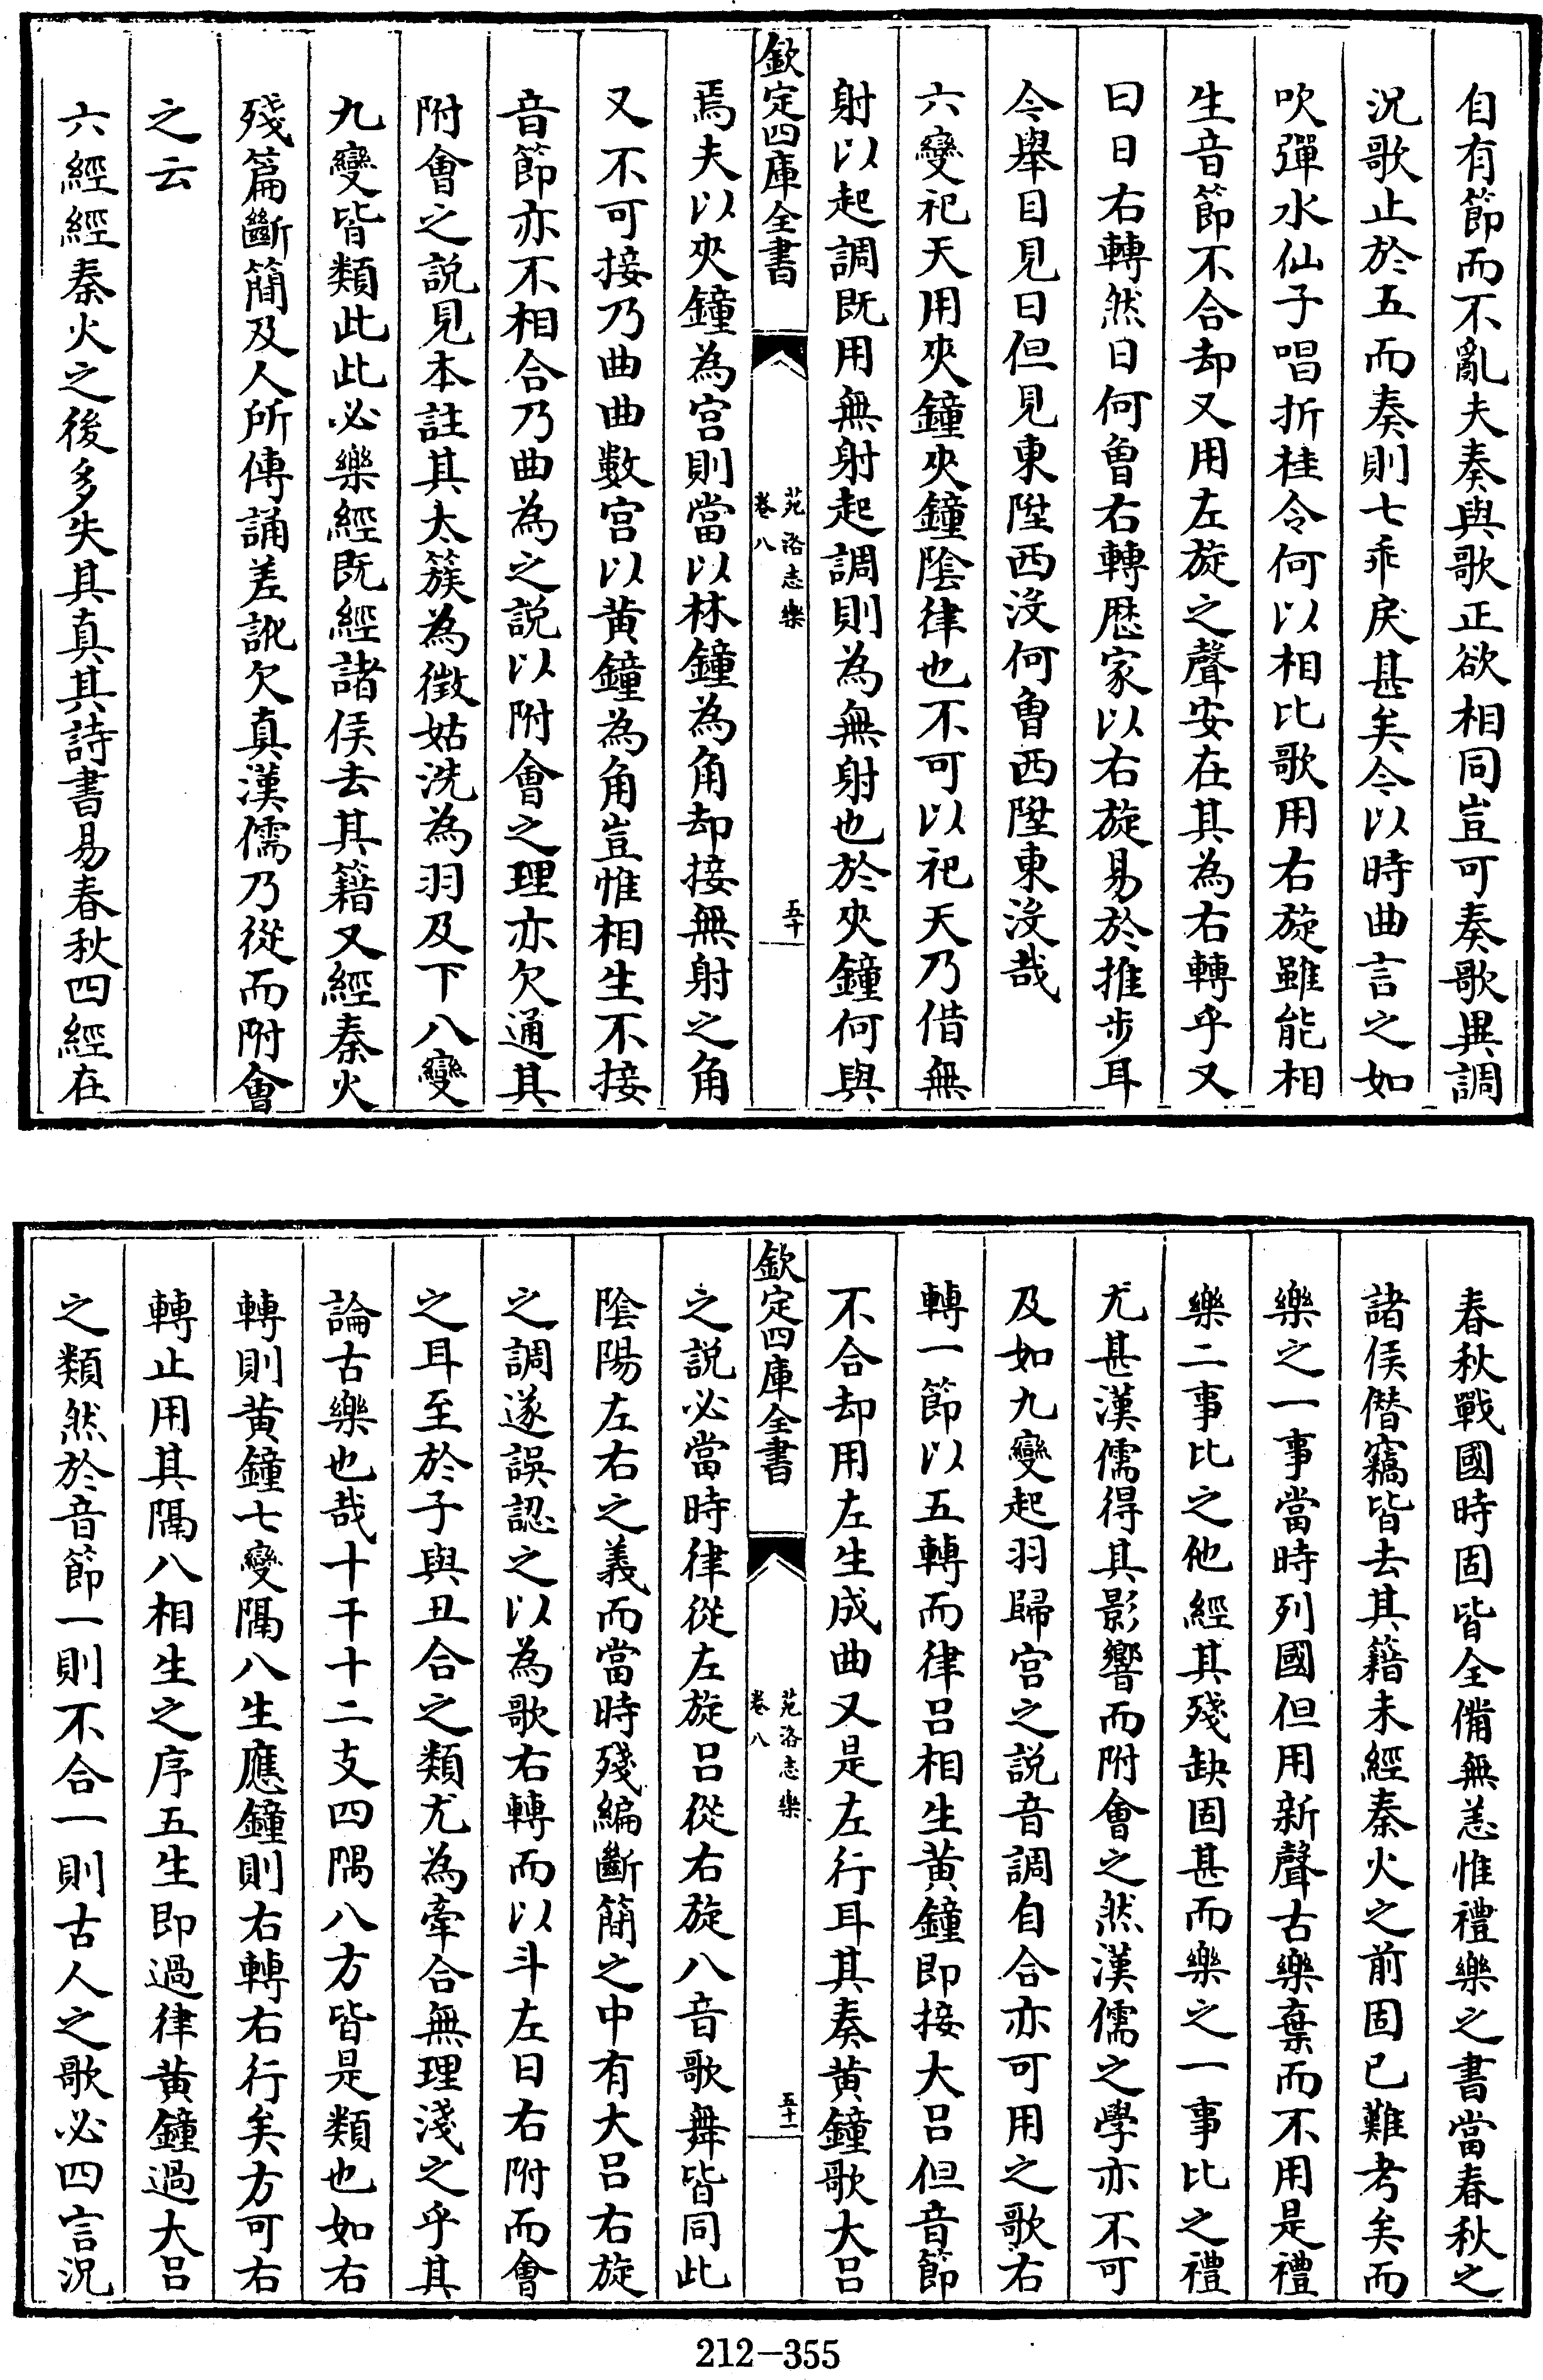 自有節而不亂夫奏與歌正欲相同豈可奏歌異調
況歌止於五而奏則七乖戾甚矣今以時曲言之如
吹彈水仙子唱折桂令何以相比歌用右旋雖能相
生音節不合却又用左旋之聲安在其為右轉乎又
曰日右轉然日何曾右轉厯家以右旋易於推步耳
今舉目見日但見東陞西沒何曾西陞東沒哉
六變祀天用夾鐘夾鐘陰律也不可以祀天乃借無
射以起調既用無射起調則為無射也於夾鐘何與
欽定四庫全書
苑洛志樂
卷八
五十
焉夫以夾鐘為宮則當以林鐘為角却接無射之角
又不可接乃曲曲數宮以黃鐘為角豈惟相生不接
音節亦不相合乃曲為之說以附會之理亦欠通其
附會之說見本註其太簇為徵姑洗為羽及下八變
九變皆類此此必樂經既經諸侯去其籍又經秦火
殘篇斷簡及人所傳誦差訛欠真漢儒乃從而附會
之云
六經經秦火之後多失其真其詩書易春秋四經在
春秋戰國時固皆全備無恙惟禮樂之書當春秋之
諸侯僭竊皆去其籍未經秦火之前固已難考矣而
樂之一事當時列國但用新聲古樂棄而不用是禮
樂二事比之他經其殘缺固甚而樂之一事比之禮
尤甚漢儒得其影響而附會之然漢儒之學亦不可
及如九變起羽歸宮之說音調自合亦可用之歌右
轉一節以五轉而律呂相生黃鐘即接大呂但音節
不合却用左生成曲又是左行耳其奏黃鐘歌大呂
欽定四庫全書
苑洛志樂
卷八
五十一
之說必當時律從左旋呂從右旋八音歌舞皆同此
陰陽左右之義而當時殘編斷簡之中有大呂右旋
之調遂誤認之以為歌右轉而以斗左日右附而會
之耳至於子與丑合之類尤為牽合無理淺之乎其
論古樂也哉十干十二支四隅八方皆是類也如右
轉則黃鐘七變隔八生應鐘則右轉右行矣方可右
轉止用其隔八相生之序五生即過律黃鐘過大呂
之類然於音節一則不合一則古人之歌必四言況
212-355